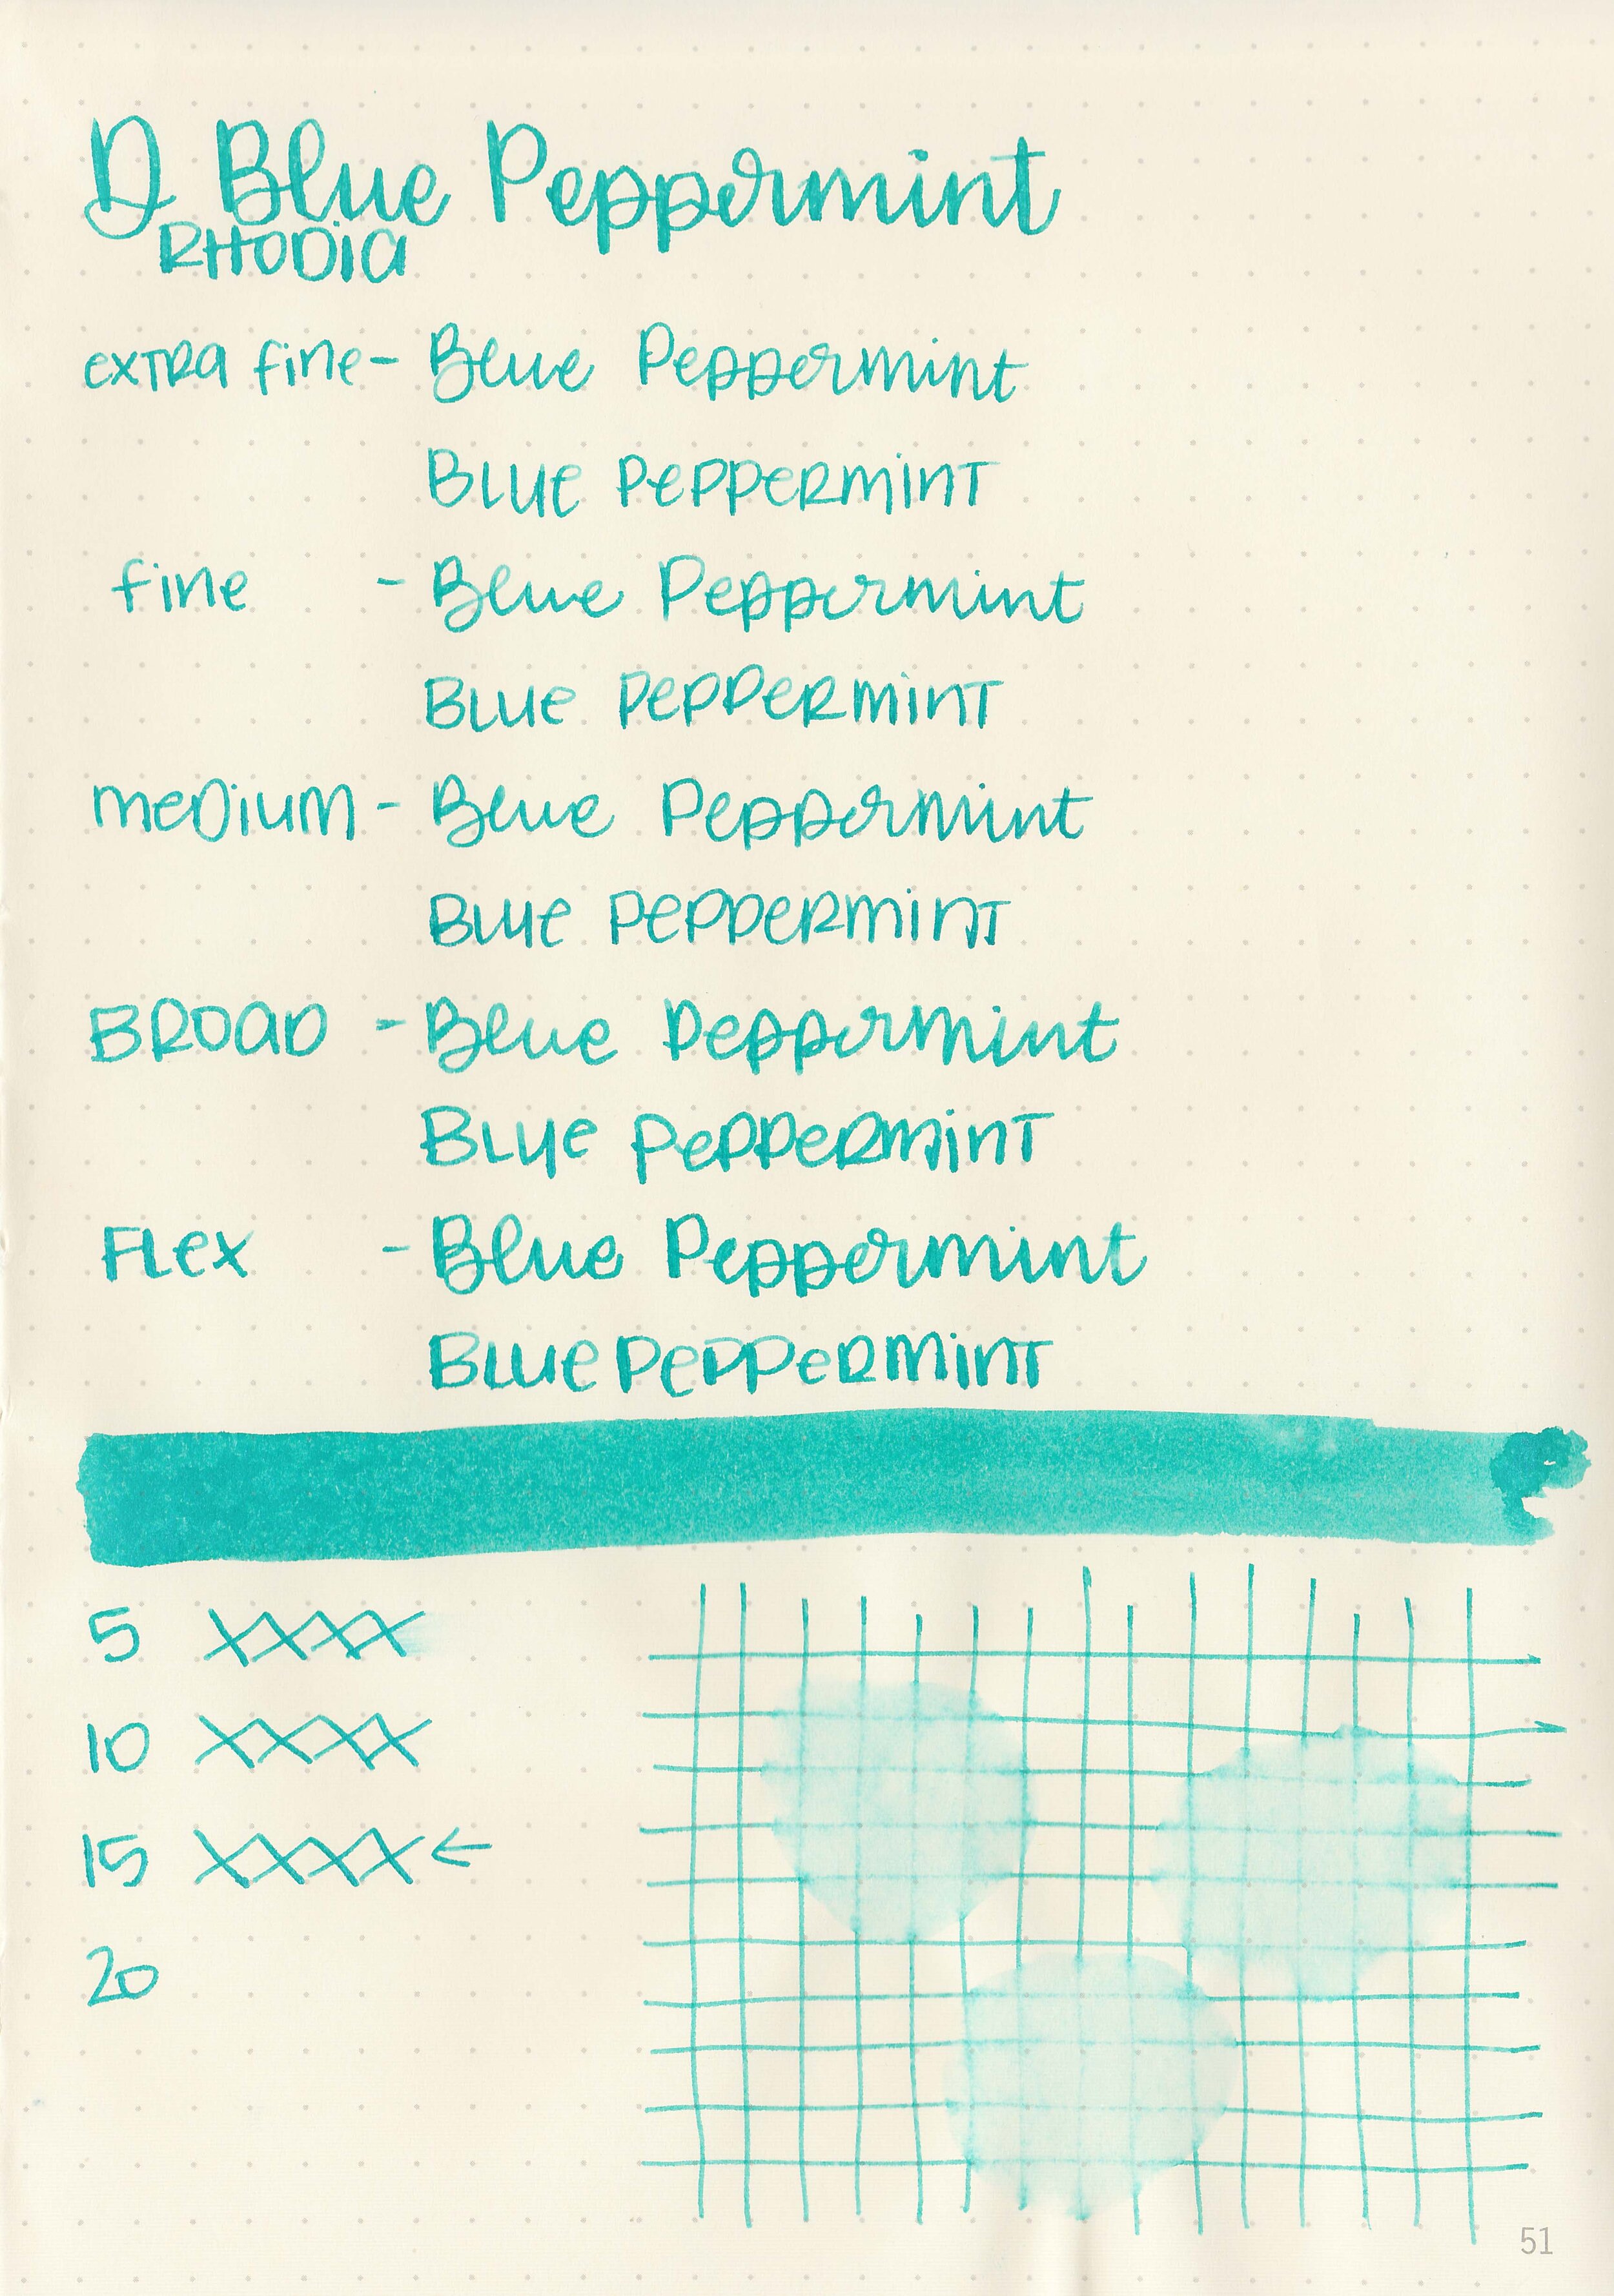 D Blue Peppermint
RHODIA
extra fine - Blue Peppermint
Blue Peppermint
fine - Blue Peppermint
Blue Peppermint
medium - Blue Peppermint
Blue Peppermint
BROAD - Blue Peppermint
Blue Peppermint
Flex - Blue Peppermint
Blue Peppermint
5 XXXX
10 XXXX
15 XXXX ←
20
51